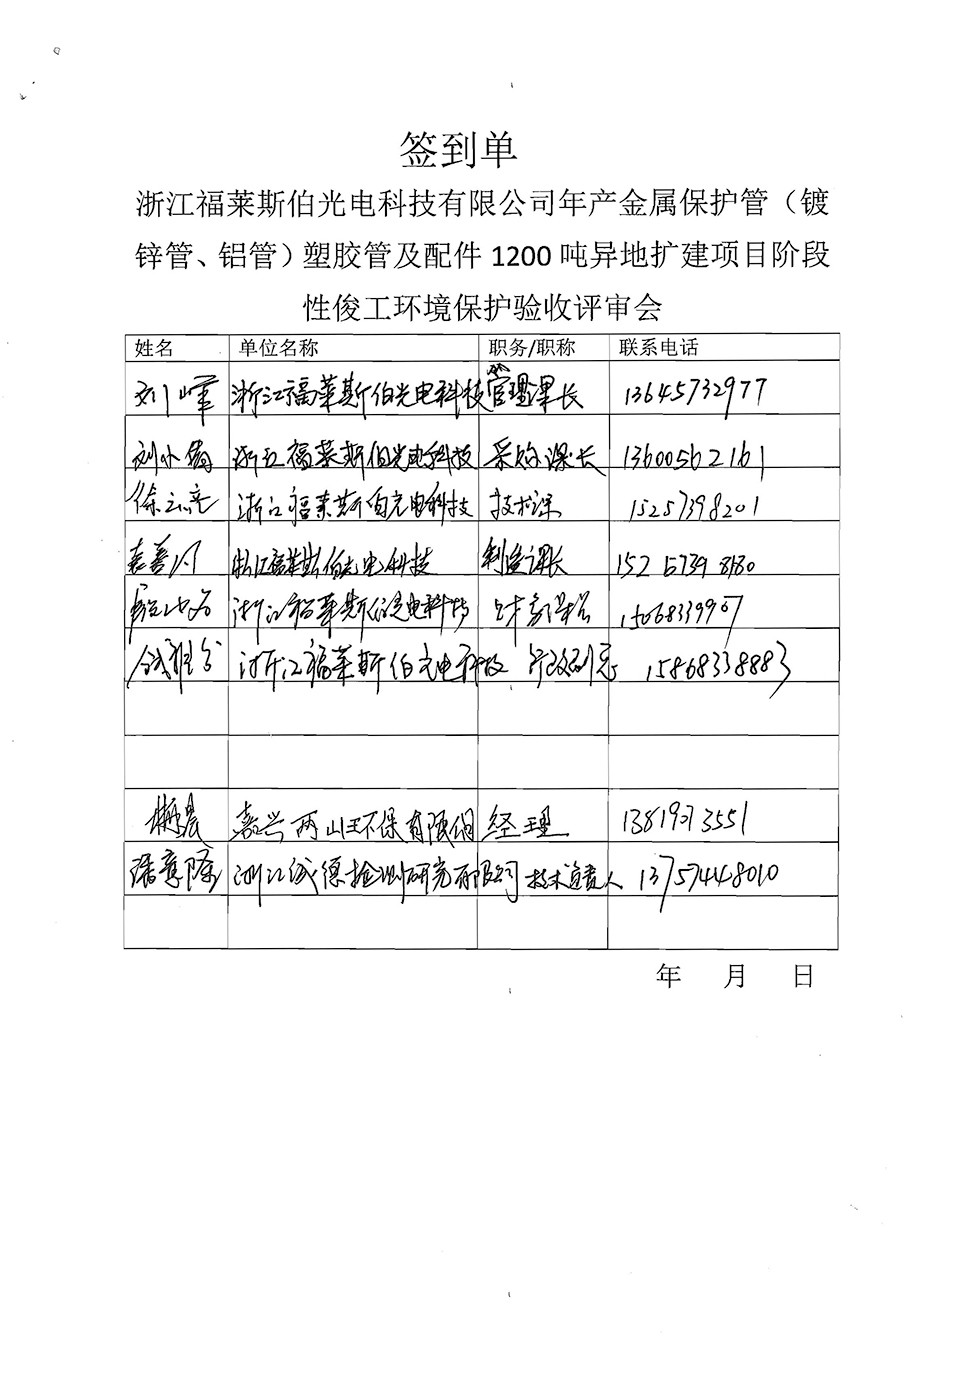 签到单
浙江福莱斯伯光电科技有限公司年产金属保护管（镀
锌管、铝管）塑胶管及配件1200吨异地扩建项目阶段
性俊工环境保护验收评审会
姓名 单位名称 职务/职称 联系电话
刘峰 浙江福莱斯伯光电科技 管理课长 13645732977
刘小 浙江福莱斯伯光电科技 采购课长 13600562161
徐云亮 浙江福莱斯伯光电科技 技术课 15257398201
浙江福莱斯伯光电科技 制造课长
浙江福莱斯伯光电科技 15068339907
钱雅 浙江福莱斯伯光电科技 15868338883
梅晨 嘉兴两山环保有限公司 经理
潘章隆 浙江诚德检测研究有限公司 技术负责人 13757448010
年 月 日